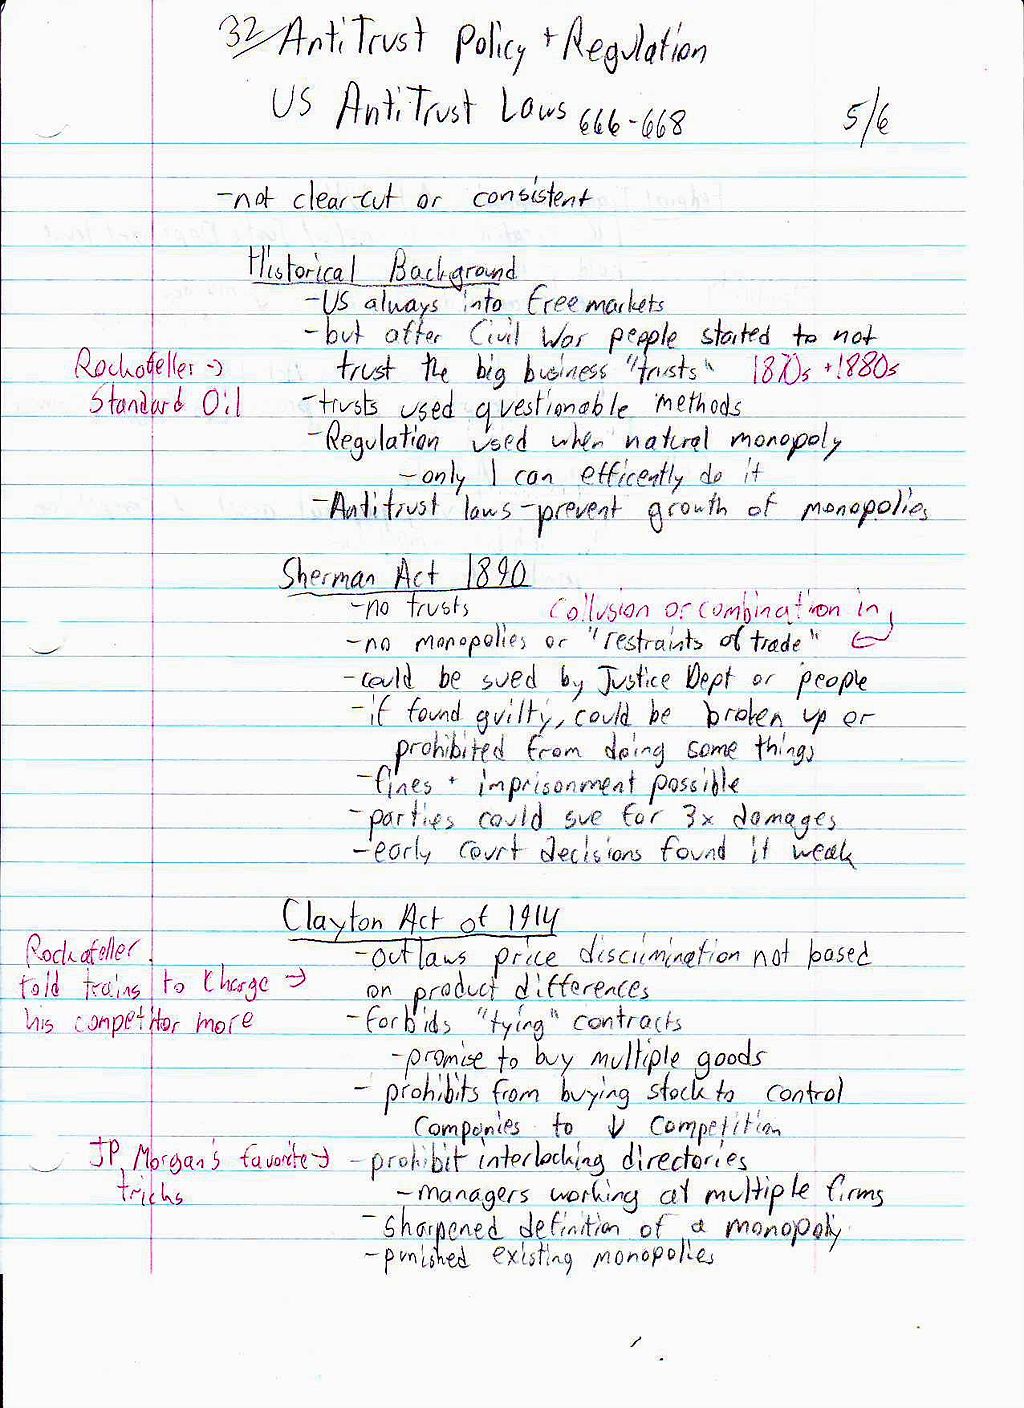 32 AntiTrust Policy + Regulation
US AntiTrust Laws 666-668 5/6
-not clear-cut or consistent
Historical Background
-US always into free markets
-but after Civil War people started to not
trust the big business "trusts" 1870s + 1880s
Rockofeller →
Standard Oil
-trusts used questionable methods
-Regulation used when natural monopoly
-only 1 can efficently do it
-Antitrust laws-prevent growth of monopolies
Sherman Act 1890
-no trusts Collusion or combination in
-no monopolies or "restraints of trade"
-could be sued by Justice Dept or people
-if found guilty, could be broken up or
prohibited from doing some things
-fines + imprisonment possible
-parties could sue for 3x damages
-early court decisions found it weak
Clayton Act of 1914
Rockafeller
told trains to charge →
his competitor more
-outlaws price discrimination not based
on product differences
-forbids "tying" contracts
-promise to buy multiple goods
- prohibits from buying stock to control
Companies to ↓ Competition
JP Morgan's favorite →
tricks
-prohibit interlocking directories
-managers working at multiple firms
-sharpened definition of a monopoly
-punished existing monopolies